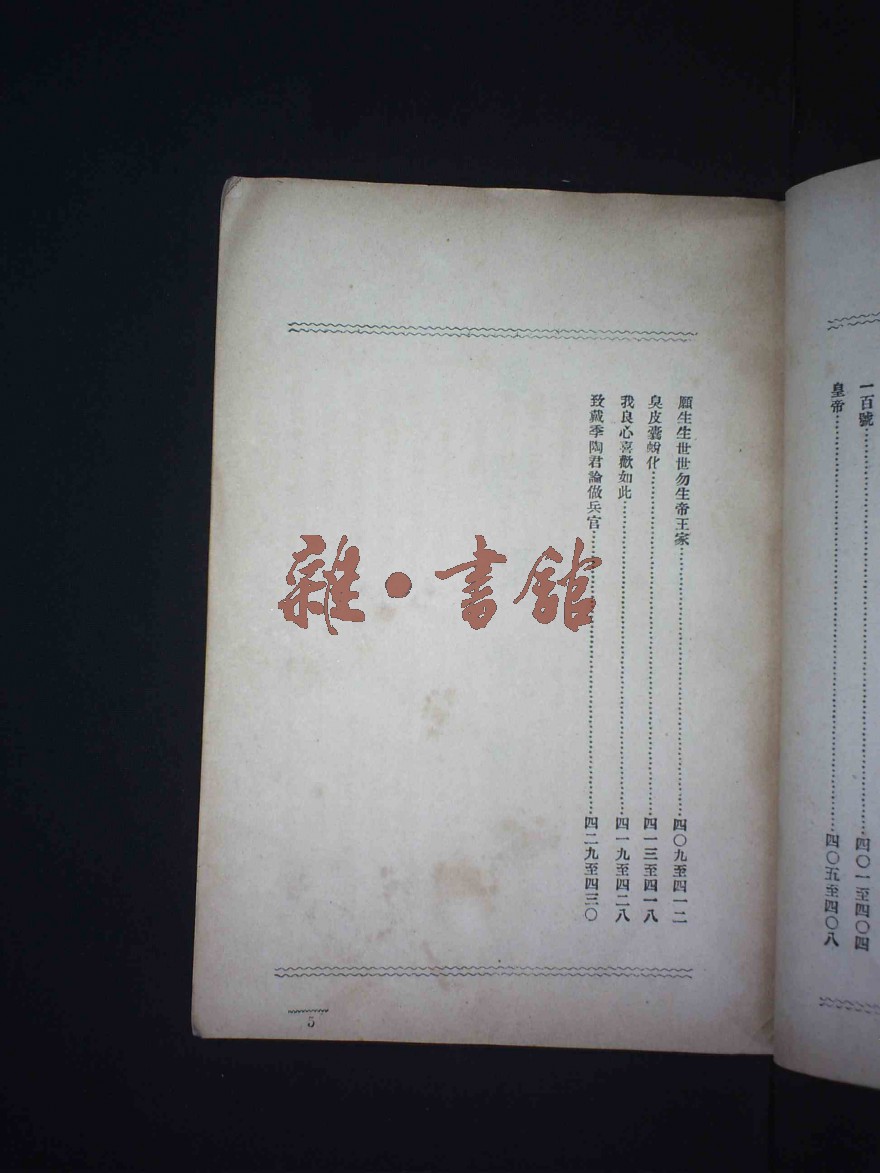 一百號…………四〇一至四〇四
皇帝…………四〇五至四〇八
願生生世世勿生帝王家…………四〇九至四一二
臭皮囊蛻化…………四一三至四一八
我良心喜歡如此…………四一九至四二八
致戴季陶君論做兵官…………四二九至四三〇
5
雜·書館